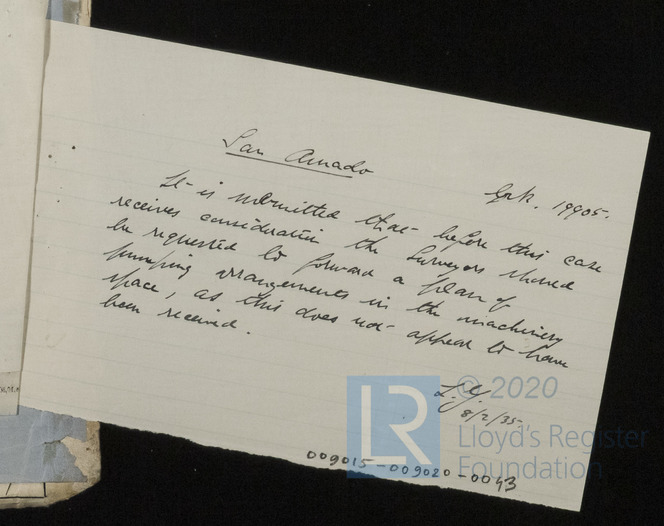 San Amado
Grk. 19905.
It is submitted that before this case
receives consideration the Surveyors should
be requested to forward a plan of
pumping arrangements in the machinery
space, as this does not appear to have
been received.
8/2/35.
LR
© 2020
Lloyd's Register
Foundation
009015-009020-0043